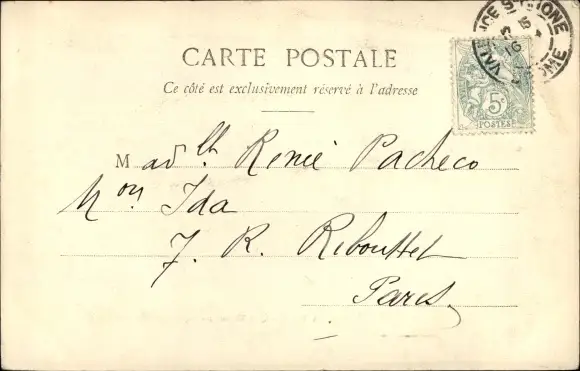 CARTE POSTALE
Ce côté est exclusivement réservé à l'adresse
VALENCE S-RHONE
DROME
5c
POSTES
Madlle Renée Pacheco
Mon Ida
7. R. Ribouttet
Paris